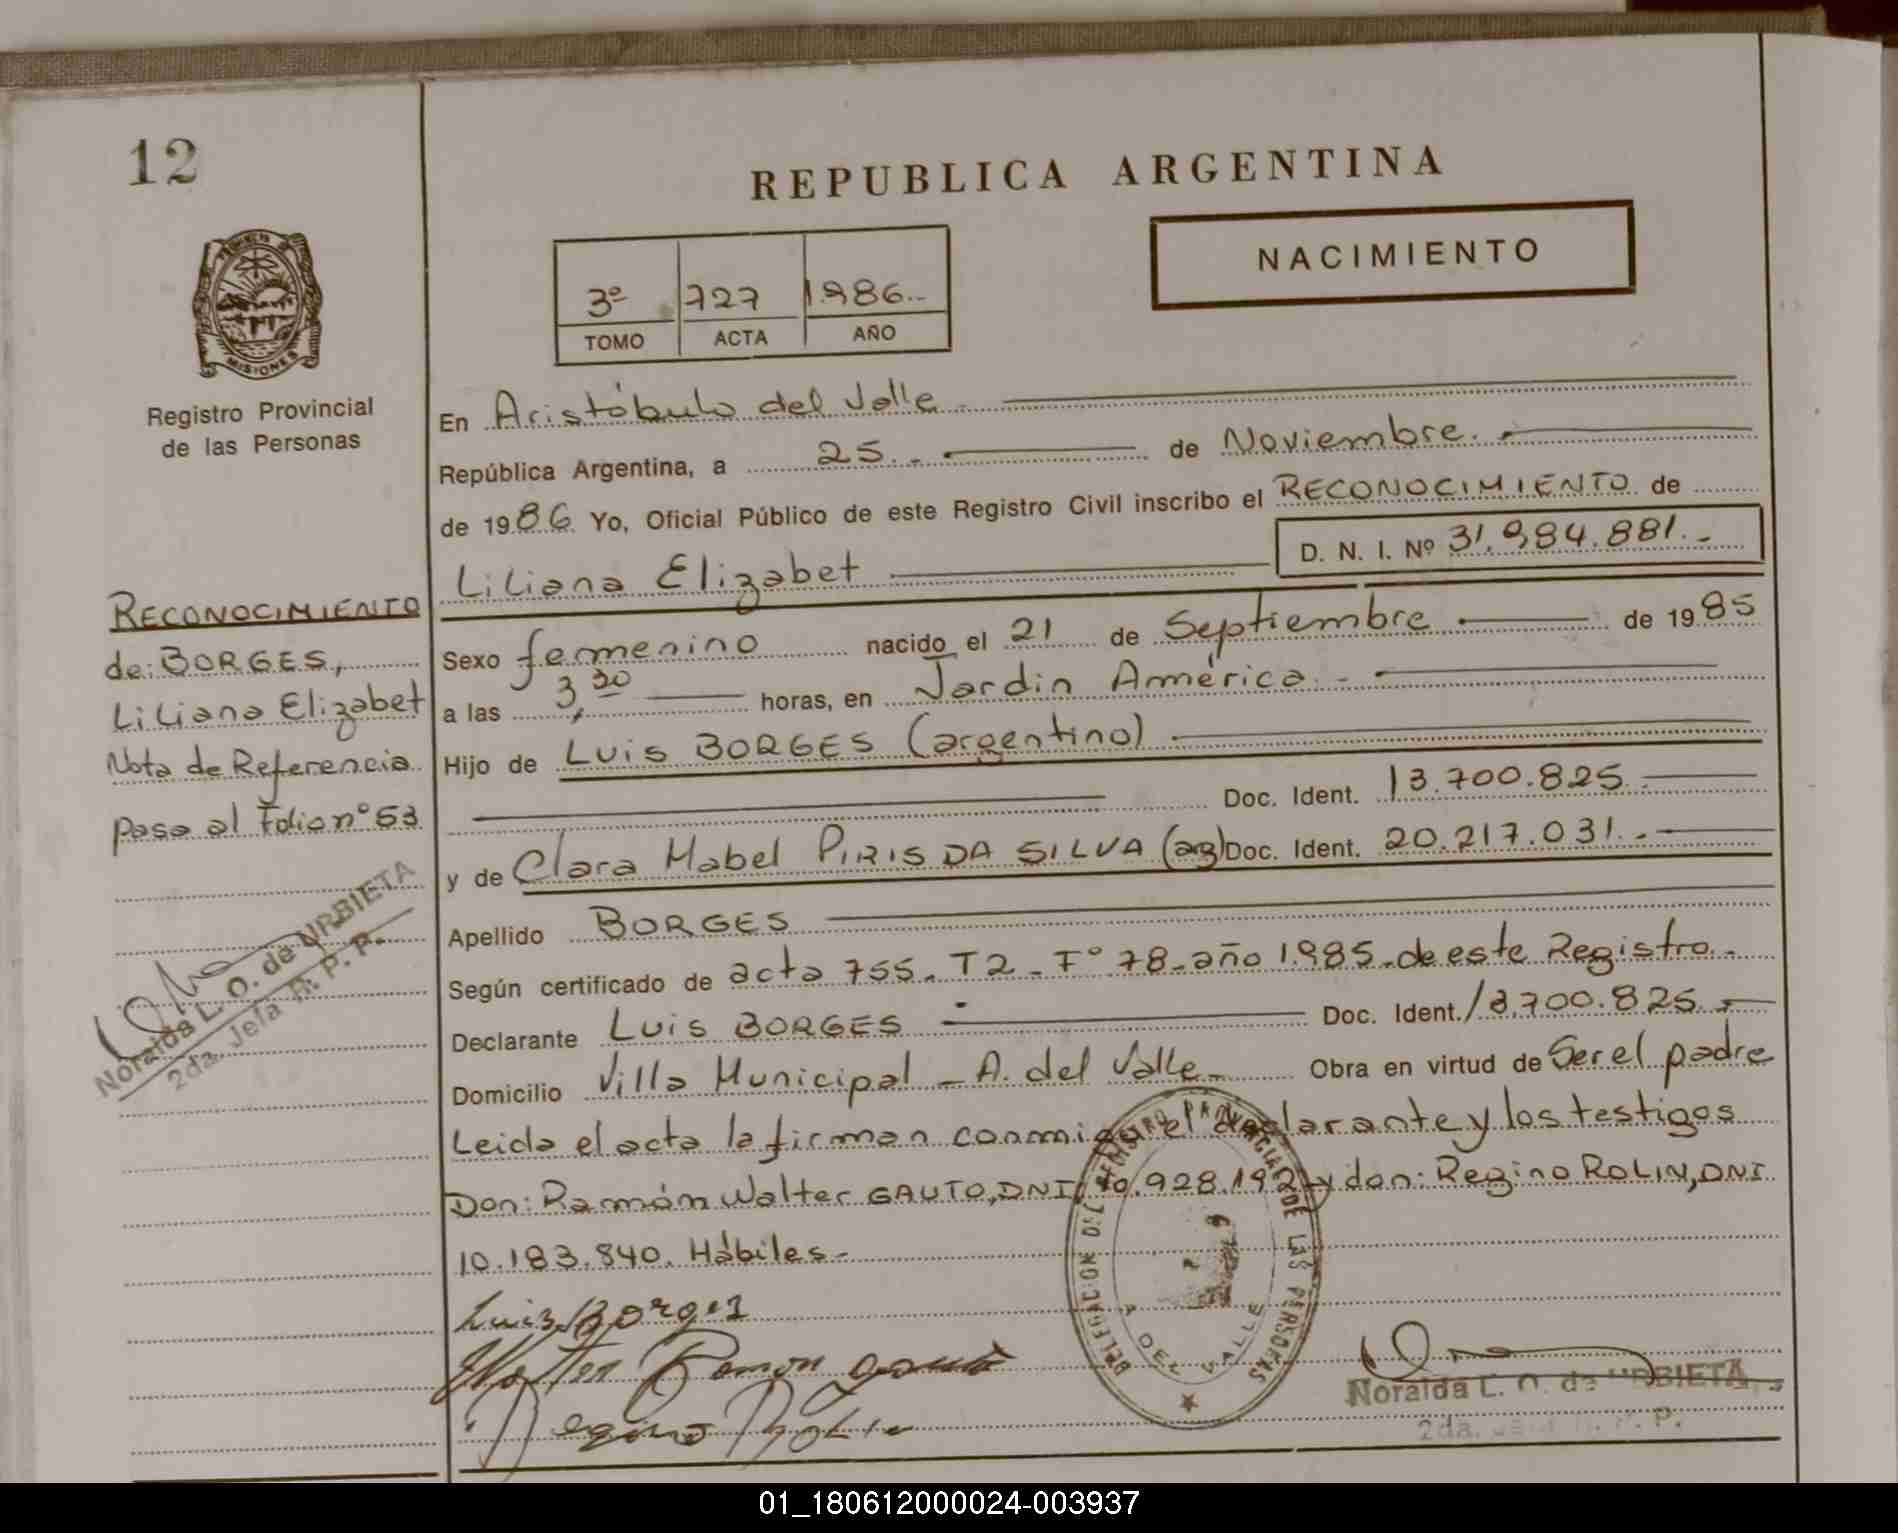 12
REPUBLICA ARGENTINA
NACIMIENTO
3º 727 1.986.-
TOMO ACTA AÑO
MISIONES
Registro Provincial
de las Personas
En Aristóbulo del Valle.-
República Argentina, a 25.- de Noviembre.-
de 1986. Yo, Oficial Público de este Registro Civil inscribo el RECONOCIMIENTO de
Liliana Elizabet D. N. I. Nº 31.984.881.-
Sexo femenino nacido el 21 de Septiembre de 1985
a las 3,30 horas, en Jardin América.-
Hijo de Luis BORGES (argentino)
Doc. Ident. 13.700.825.
y de Clara Mabel PIRIS DA SILVA (arg) Doc. Ident. 20.217.031.-
Apellido BORGES
Según certificado de acta 755.- T2 - Fº 78- año 1.985.- de este Registro.-
Declarante Luis BORGES Doc. Ident. 13.700.825.-
Domicilio Villa Municipal - A. del Valle.- Obra en virtud de Ser el padre
Leida el acta la firman conmigo el declarante y los testigos
Don: Ramón Walter GAUTO, DNI, 10.928.192 y don: Regino ROLIN, DNI.
10.183.840. Hábiles.-
Luis Borges
Walter Ramon Gauto
Regino Rolin
RECONOCIMIENTO
de: BORGES,
Liliana Elizabet
Nota de Referencia
pasa al Folio nº 53
Noralda L. O. de URBIETA
2da. Jefa R. P. P.
DELEGACION DEL REGISTRO PROVINCIAL DE LAS PERSONAS
A. DEL VALLE
Noralda L. O. de URBIETA
2da. Jefa R. P. P.
01_180612000024-003937